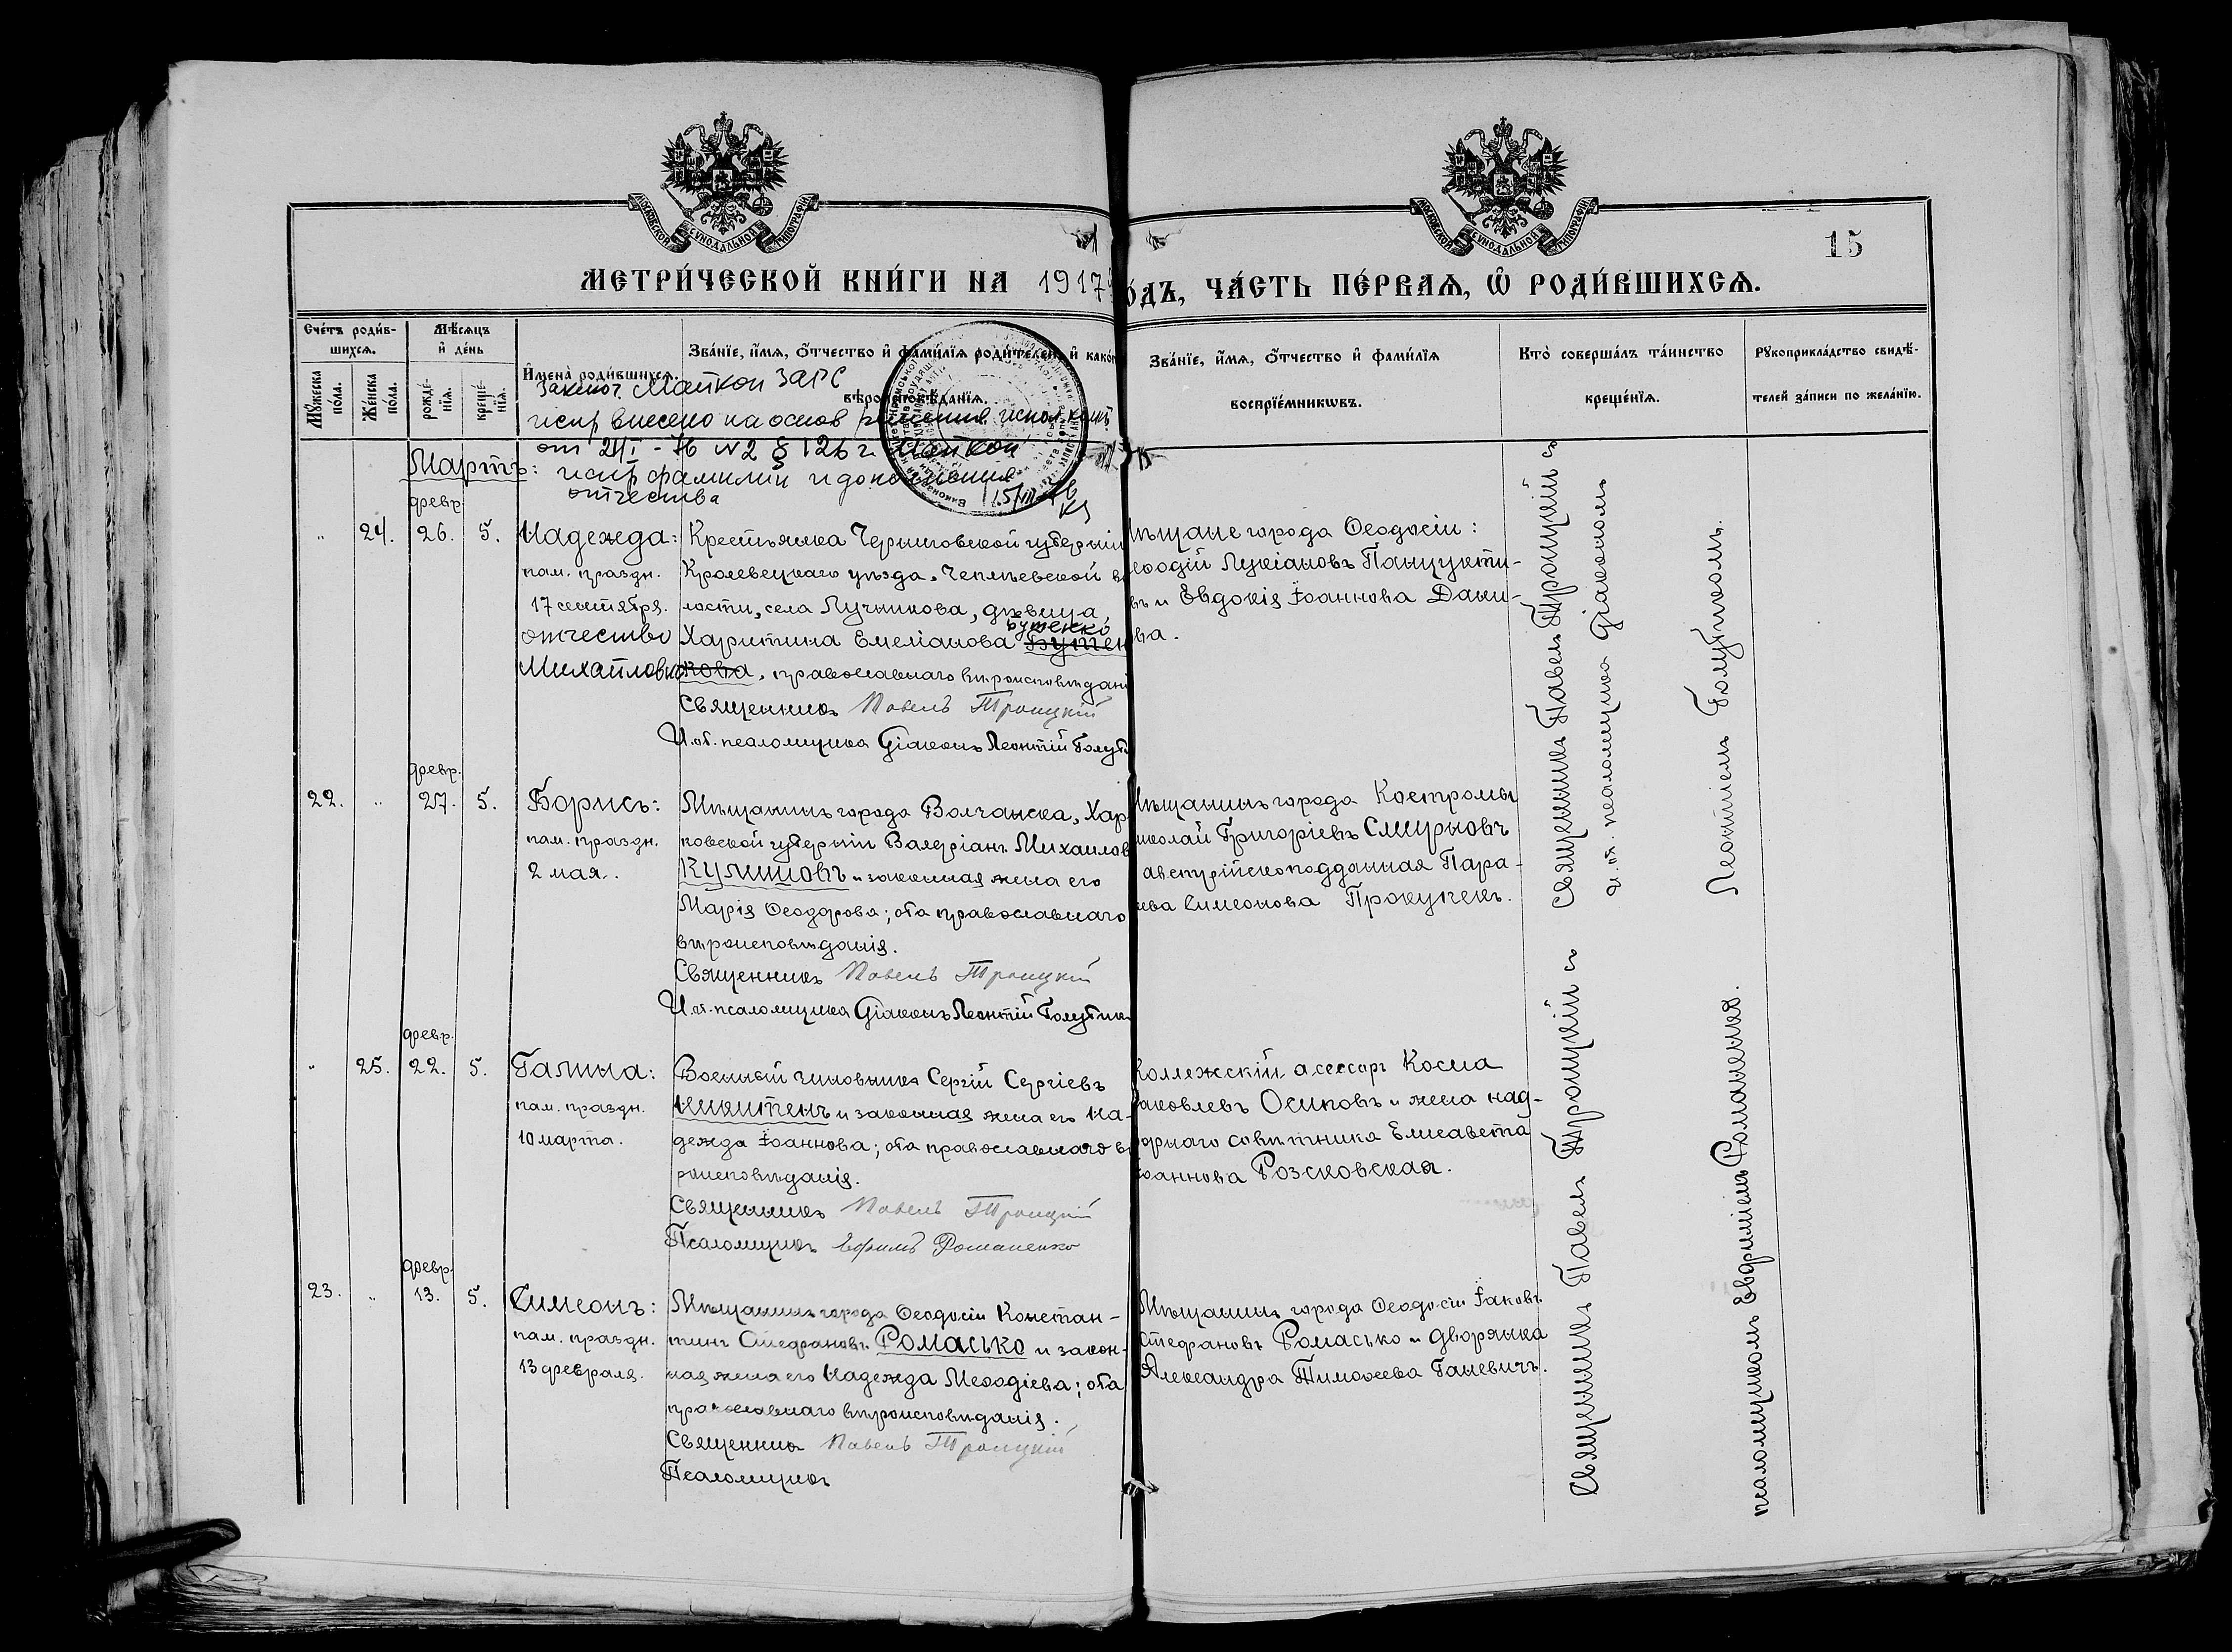 МОСКОВСКОЙ СѴНОДАЛЬНОЙ ТИПОГРАФІИ
МОСКОВСКОЙ СѴНОДАЛЬНОЙ ТИПОГРАФІИ
15
МЕТРИ́ЧЕСКОЙ КНИ́ГИ НА 1917 ГО́ДЪ, ЧА́СТЬ ПЕ́РВАѦ, Ѡ҆ РОДИ́ВШИХСѦ.
Сче́тъ роди́в-
шихсѧ.
Мꙋ́жеска по́ла.
Же́нска по́ла.
Мѣ́сѧцъ
и҆ де́нь
рожде́-нїѧ.
креще́-нїѧ.
И҆мена̀ роди́вшихсѧ.
Зва́нїе, и҆́мѧ, ѻ҆́тчество и҆ фами́лїѧ роди́телей, и҆ како́гѡ
вѣроисповѣ́данїѧ.
Зва́нїе, и҆́мѧ, ѻ҆́тчество и҆ фами́лїѧ
воспрїе́мникѡвъ.
Кто̀ соверша́лъ та́инство
креще́нїѧ.
Рꙋкоприкла́дство свидѣ́-
телей за́писи по жела́нїю.
Заключ. Майкоп ЗАГС
испр внесено на основ решения испол ком
от 2/III-76 №2 § 126 г. Майкоп
испр фамилии и дополнения
отчества
Мартъ:
февр.
24. 26. 5. Надежда:
пам. праздн.
17 сентября.
отчество
Михайловна
Крестьянка Черниговской губерніи
Кролевецкаго уѣзда, Чеплѣевской во-
лости, села Лучникова, дѣвица
Бутенко
Харитина Емеліанова Бутен-
кова, православнаго вѣроисповѣдані
Священникъ Павелъ Троицкій
И. об. псаломщика Діаконъ Леонтій Голуб
Мѣщане города Ѳеодосіи:
Меѳодій Лукіановъ Панцукти-
въ и Евдокія Іоаннова Дани-
ва.
Священникъ Павелъ Троицкій съ
и. об. псаломщика Діакономъ
Леонтіемъ Голубткомъ.
февр.
22. " 27. 5. Борисъ:
пам. праздн.
2 мая.
Мѣщанинъ города Волчанска, Харь-
ковской губерніи Валеріанъ Михаилов
Кулишовъ и законная жена его
Марія Ѳеодорова; оба православнаго
вѣроисповѣданія.
Священникъ Павелъ Троицкій
И. об. псаломщика Діаконъ Леонтій Голуб
Мѣщанинъ города Костромы
Николай Григоріевъ Смирновъ
австрійскоподданная Пара-
ева Симеонова Прокупекъ.
февр.
" 25. 22. 5. Галина:
пам. праздн.
10 марта.
Военный чиновникъ Сергій Сергіевъ
Никитенъ и законная жена его На-
дежда Іоаннова; оба православнаго вѣ
роисповѣданія.
Священникъ Павелъ Троицкій
Псаломщикъ Ефимъ Романенко
Коллежскій асессоръ Косма
Іаковлевъ Осиповъ и жена над-
ворнаго совѣтника Елисавета
Іоаннова Розсковская.
Священникъ Павелъ Троицкій съ
псаломщикомъ Евфиміемъ Романенко.
февр.
23. " 13. 5. Симеонъ:
пам. праздн.
13 февраля.
Мѣщанинъ города Ѳеодосіи Констан-
тинъ Стефановъ Ромасько и закон-
ная жена его Надежда Меѳодіева; оба
православнаго вѣроисповѣданія.
Священникъ Павелъ Троицкій
Псаломщикъ
Мѣщанинъ города Ѳеодосіи Іаковъ
Стефановъ Ромасько и дворянка
Александра Тимоѳеева Ганевичъ.